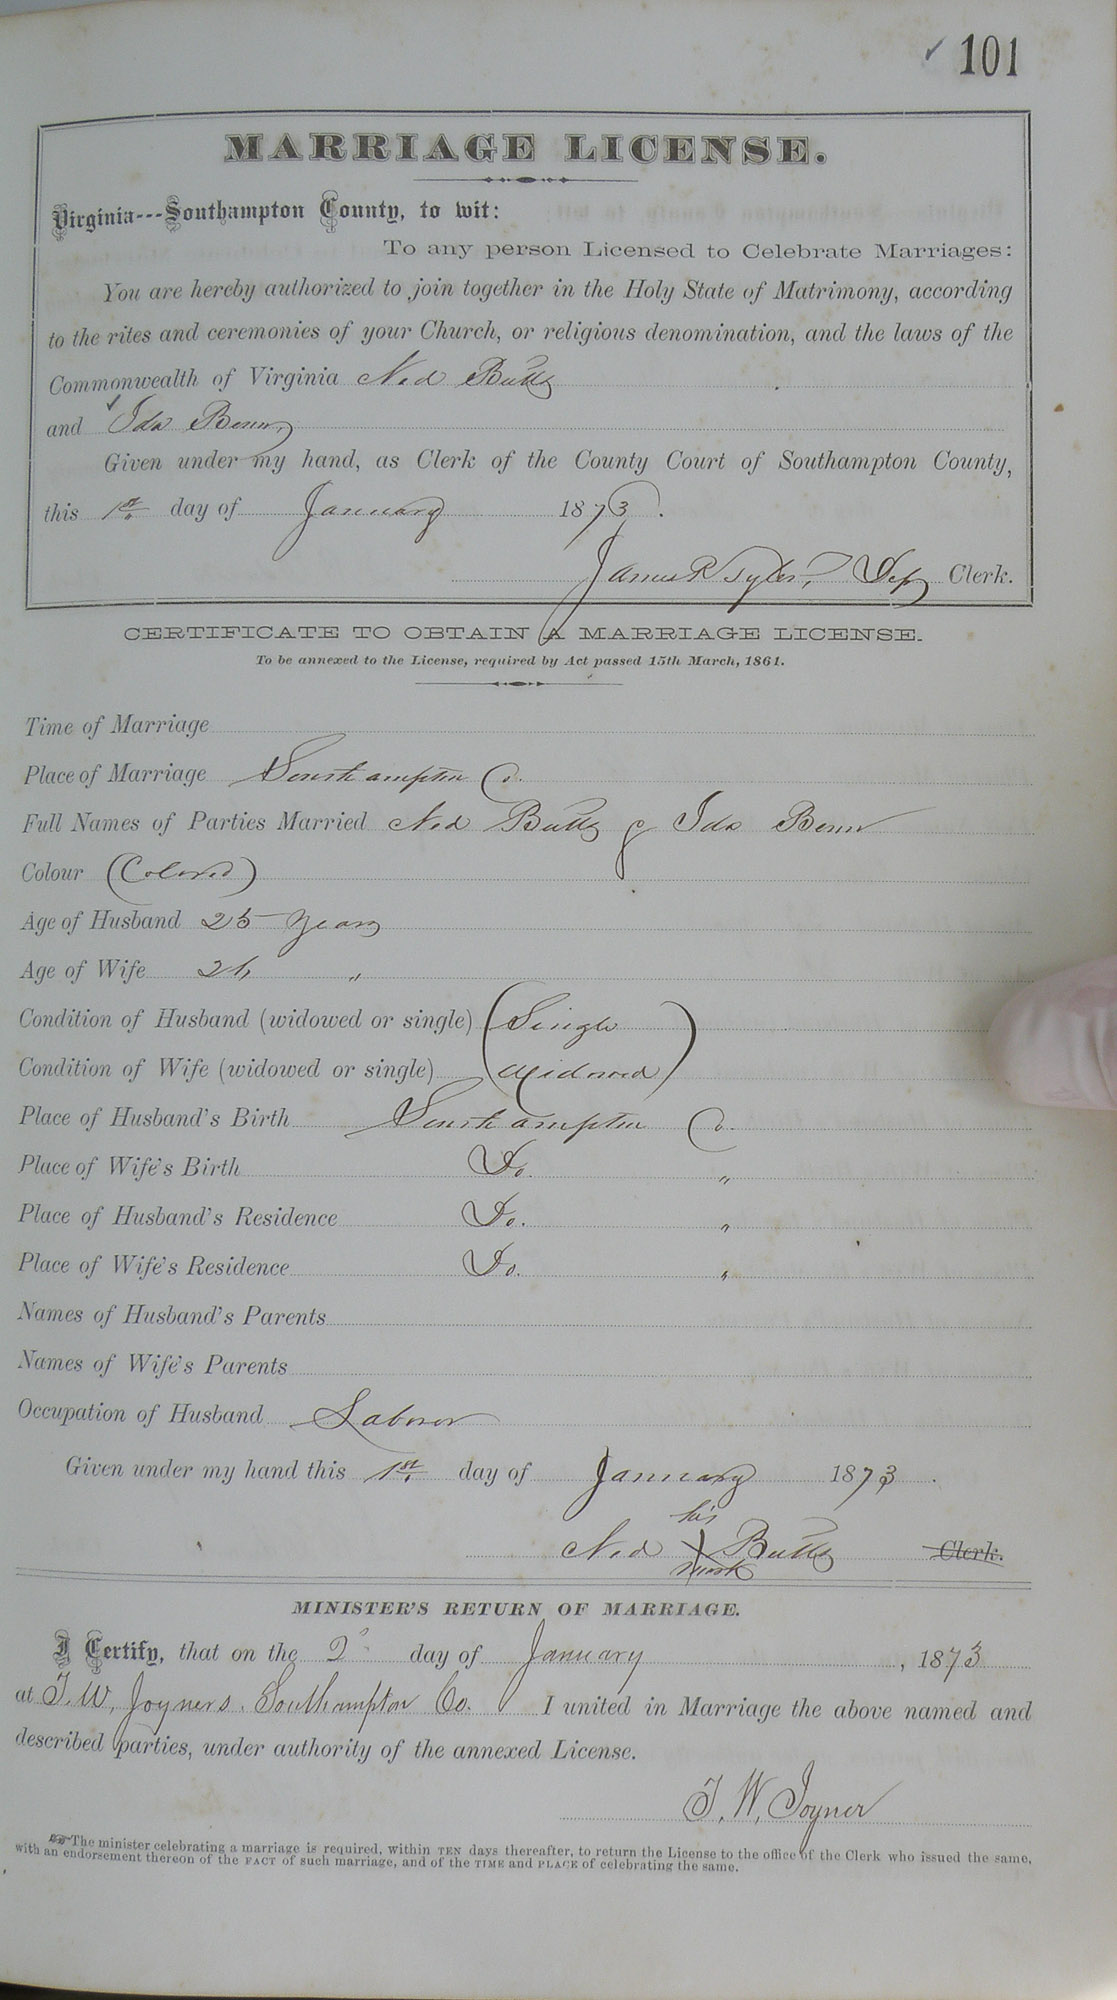 ✓ 101
MARRIAGE LICENSE.
Virginia---Southampton County, to wit:
To any person Licensed to Celebrate Marriages:
You are hereby authorized to join together in the Holy State of Matrimony, according
to the rites and ceremonies of your Church, or religious denomination, and the laws of the
Commonwealth of Virginia Ned Butts
and Ida Benn,
Given under my hand, as Clerk of the County Court of Southampton County,
this 1st. day of January 1873.
James R Tyler, Dep Clerk.
CERTIFICATE TO OBTAIN A MARRIAGE LICENSE.
To be annexed to the License, required by Act passed 15th March, 1861.
Time of Marriage
Place of Marriage Southampton Co.
Full Names of Parties Married Ned Butts & Ida Benn
Colour (Colored)
Age of Husband 25 Years
Age of Wife "
Condition of Husband (widowed or single) (Single)
Condition of Wife (widowed or single) (Widowed)
Place of Husband's Birth Southampton Co.
Place of Wife's Birth Do. "
Place of Husband's Residence Do. "
Place of Wife's Residence Do. "
Names of Husband's Parents
Names of Wife's Parents
Occupation of Husband Laborer
Given under my hand this 1st. day of January 1873.
his
Ned X Butts Clerk.
mark
MINISTER'S RETURN OF MARRIAGE.
I Certify, that on the 2 day of January, 1873
at T. W. Joyners. Southampton Co. I united in Marriage the above named and
described parties, under authority of the annexed License.
T. W. Joyner
The minister celebrating a marriage is required, within TEN days thereafter, to return the License to the office of the Clerk who issued the same,
with an endorsement thereon of the FACT of such marriage, and of the TIME and PLACE of celebrating the same.